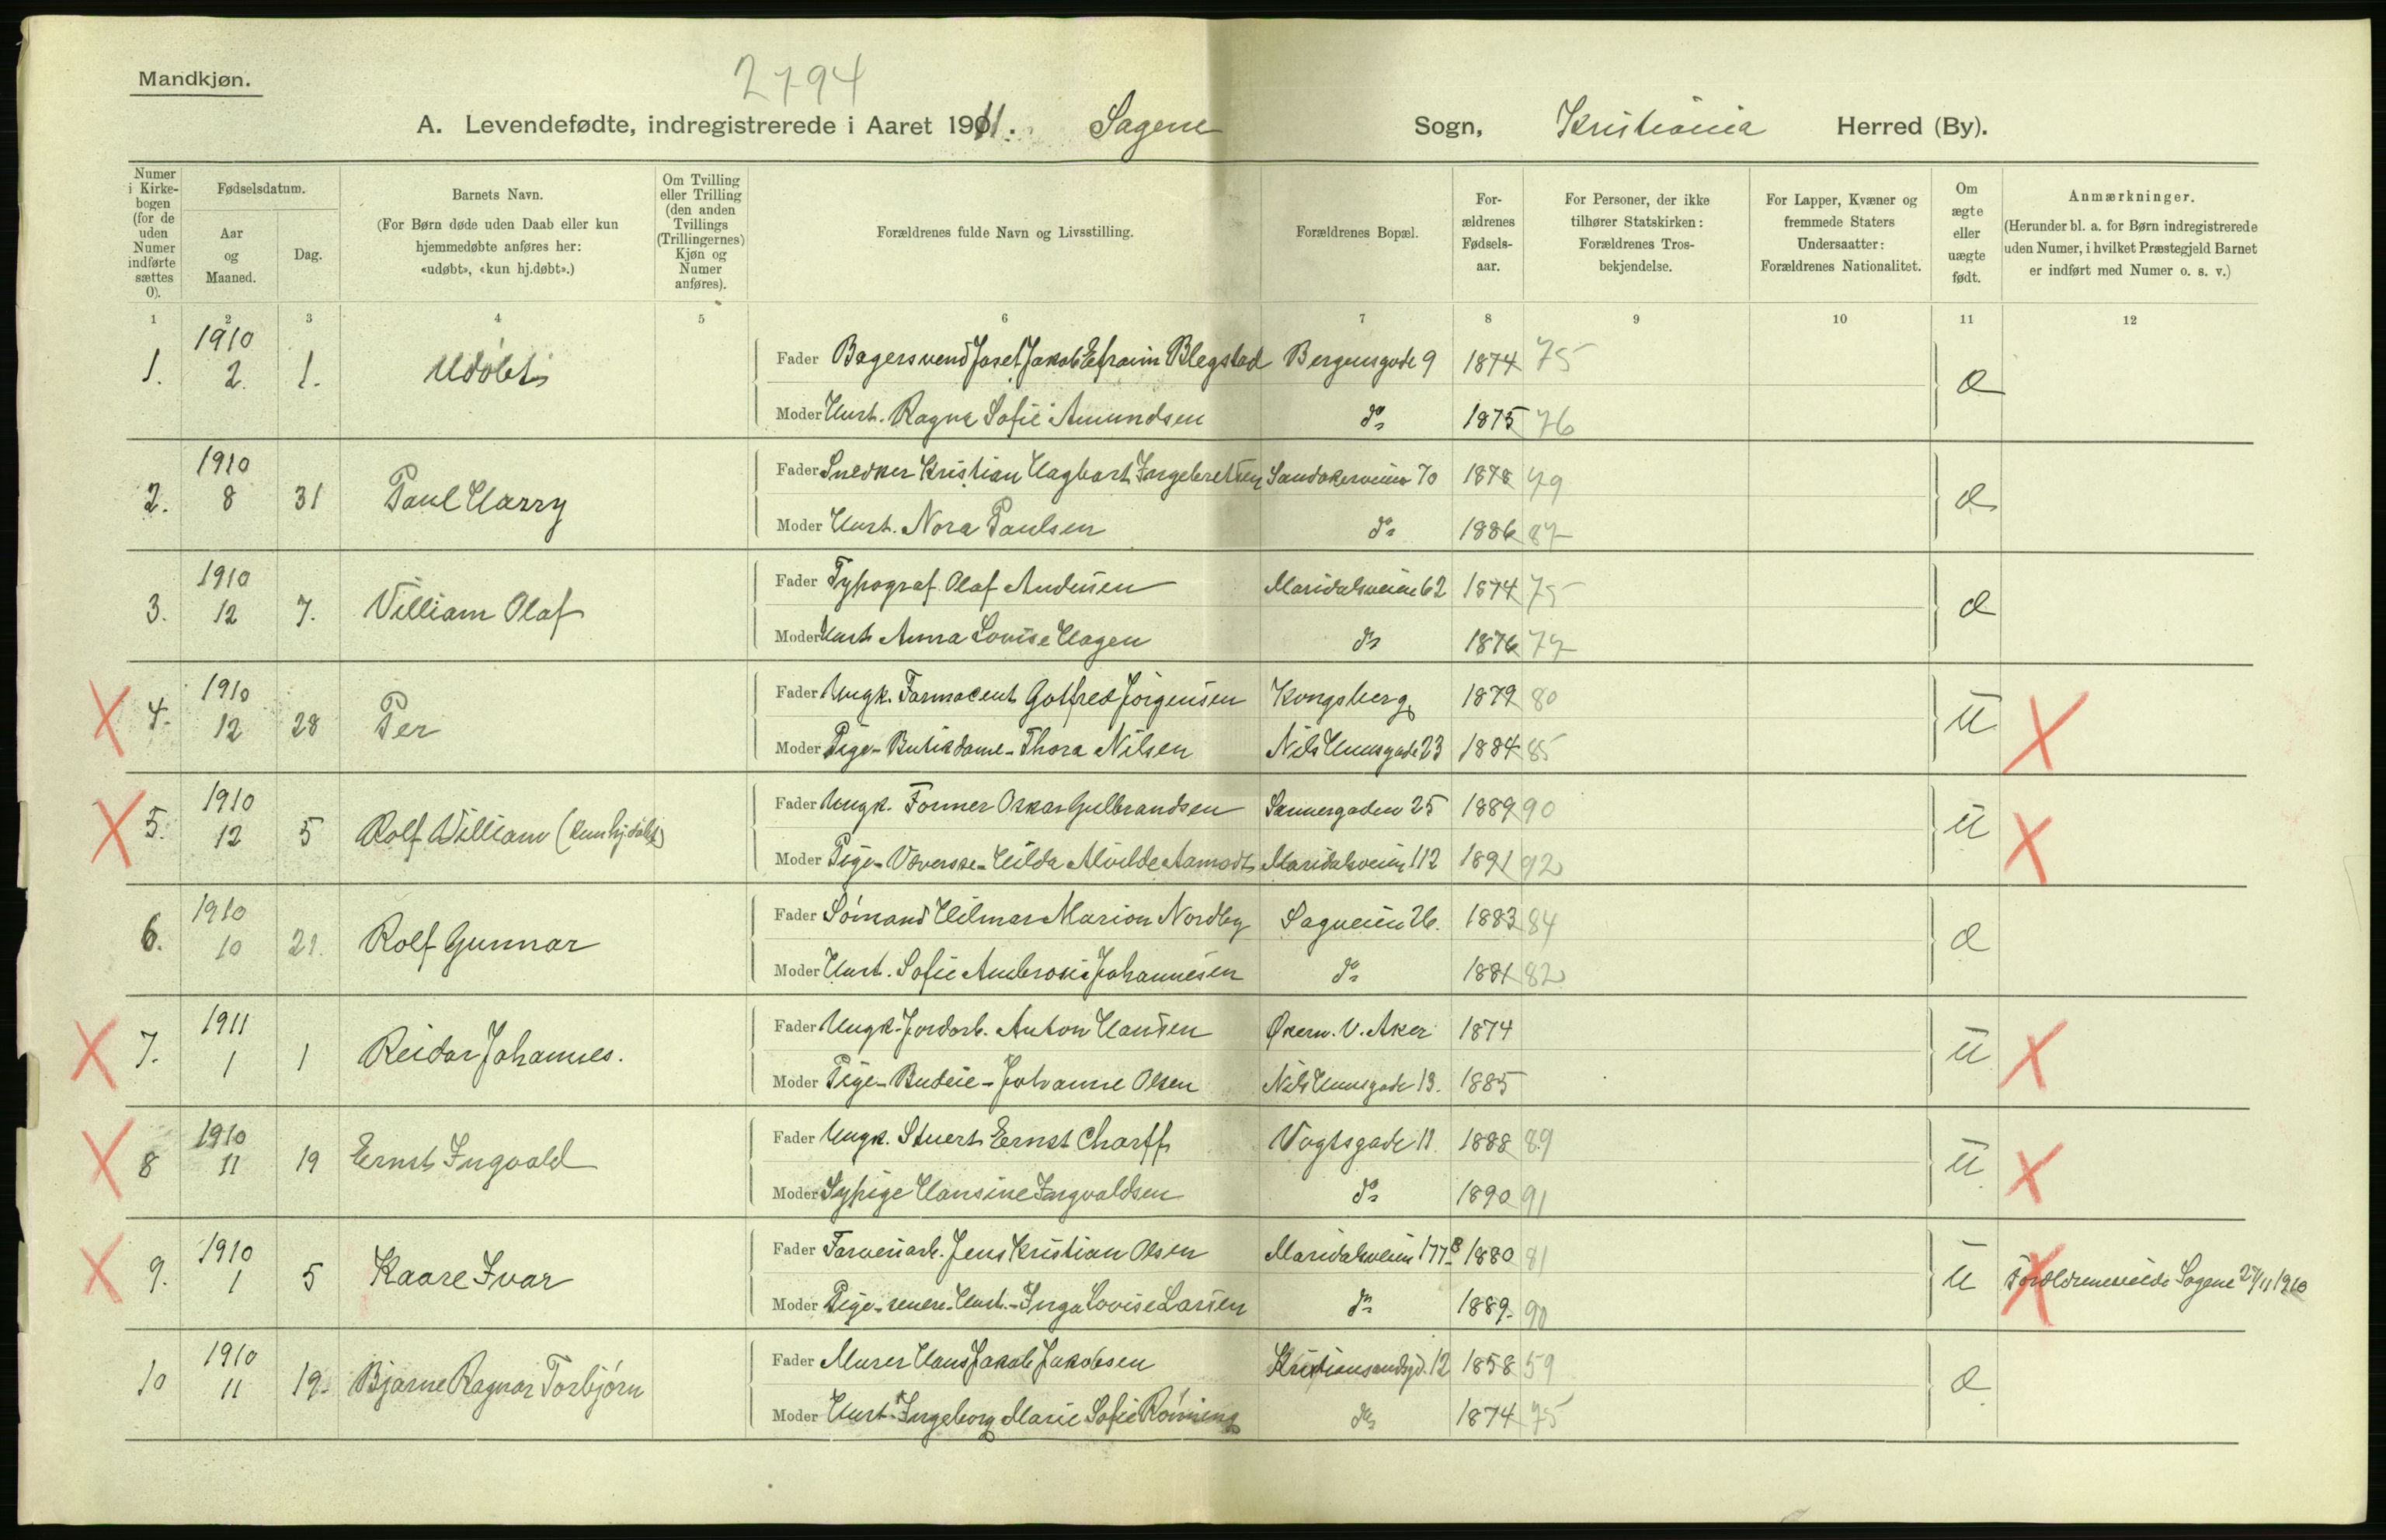 Mandkjøn.
2794
A. Levendefødte, indregistrerede i Aaret 1911. Sagene Sogn, Kristiania Herred (By).
Numer i Kirkebogen (for de uden Numer indførte sættes 0).
Fødselsdatum.
Aar og Maaned.
Dag.
Barnets Navn.
(For Børn døde uden Daab eller kun hjemmedøbte anføres her: «udøbt», «kun hj.døbt».)
Om Tvilling eller Trilling (den anden Tvillings (Trillingernes) Kjøn og Numer anføres).
Forældrenes fulde Navn og Livsstilling.
Forældrenes Bopæl.
Forældrenes Fødselsaar.
For Personer, der ikke tilhører Statskirken: Forældrenes Trosbekjendelse.
For Lapper, Kvæner og fremmede Staters Undersaatter: Forældrenes Nationalitet.
Om ægte eller uægte født.
Anmærkninger.
(Herunder bl. a. for Børn indregistrerede uden Numer, i hvilket Præstegjeld Barnet er indført med Numer o. s. v.)
1 2 3 4 5 6 7 8 9 10 11 12
1. 1910 2. 1. Udøbt
Fader Bagersvend Josef Jakob Efraim Blegstad Bergensgade 9 1874 75 æ
Moder Hust. Ragna Sofie Amundsen do 1875 76
2. 1910 8 31 Paul Harry
Fader Snedker Kristian Hagbart Ingebretsen Sandakerveien 70 1878 79 æ
Moder Hust. Nora Paulsen do 1886 87
3. 1910 12 7. William Olaf
Fader Typograf Olaf Andersen Maridalsveien 62 1874 75 æ
Moder Hust Anna Lovise Hagen do 1876 77
4. 1910 12 28 Per
Fader Ungk. Farmaceut Gotfred Jørgensen Kongsberg 1879 80 U
Moder Pige-Butikdame-Thora Nilsen Nils Huusgade 23 1884 85
5. 1910 12 5 Rolf William (kun hj.døbt)
Fader Ungk. Former Oskar Gulbrandsen Sannergaden 25 1889 90 U
Moder Pige-Væverske-Hilda Alvilde Aamodt Maridalsveien 112 1891 92
6. 1910 10 21. Rolf Gunnar
Fader Sømand Hilmar Marion Nordby Sagveien 26. 1883 84 æ
Moder Hust. Sofie Ambrosie Johannesen do 1881 82
7. 1911 1 1 Reidar Johannes.
Fader Ungk. Jordarb. Anton Hansen Økern. V. Aker 1874 U
Moder Pige-Budeie-Johanne Olsen Nils Huusgade 13. 1885
8 1910 11 19 Ernst Ingvald
Fader Ungk. Stuert Ernst Charff Vogtsgade 11 1888 89 U
Moder Sypige Hansine Ingvaldsen do 1890 91
9. 1910 1 5 Kaare Ivar
Fader Farveriarb. Jens Kristian Olsen Maridalsveien 177B 1880 81 U Forældrene viede Sagene 27/11 1910
Moder Pige-senere-Hust.-Inga Lovise Larsen do 1889 90
10 1910 11 19. Bjarne Ragnar Torbjørn
Fader Murer Hans Jakob Jakobsen Kristiansandsgd. 12 1858 59 æ
Moder Hust. Ingeborg Marie Sofie Rønning do 1874 75